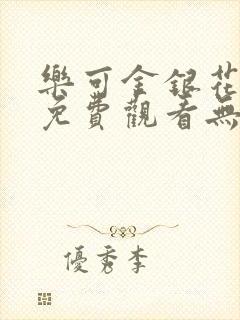 樂可金銀花
免費觀看無
優秀李